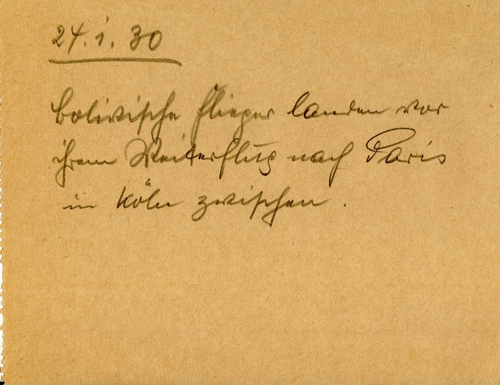 24.1.30
Bolivische Flieger landen vor
ihrem Weiterflug nach Paris
in Köln zwischen.